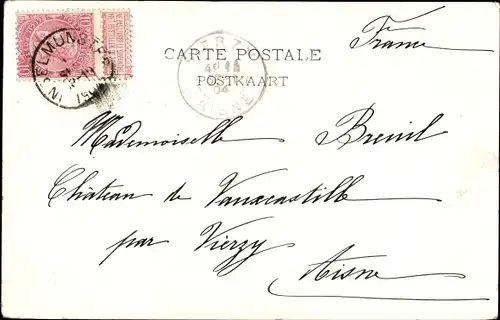 France
CARTE POSTALE
POSTKAART
Mademoiselle Breuil
Château de Vauxcastille
par Vierzy
Aisne
10
10
AISNE
04